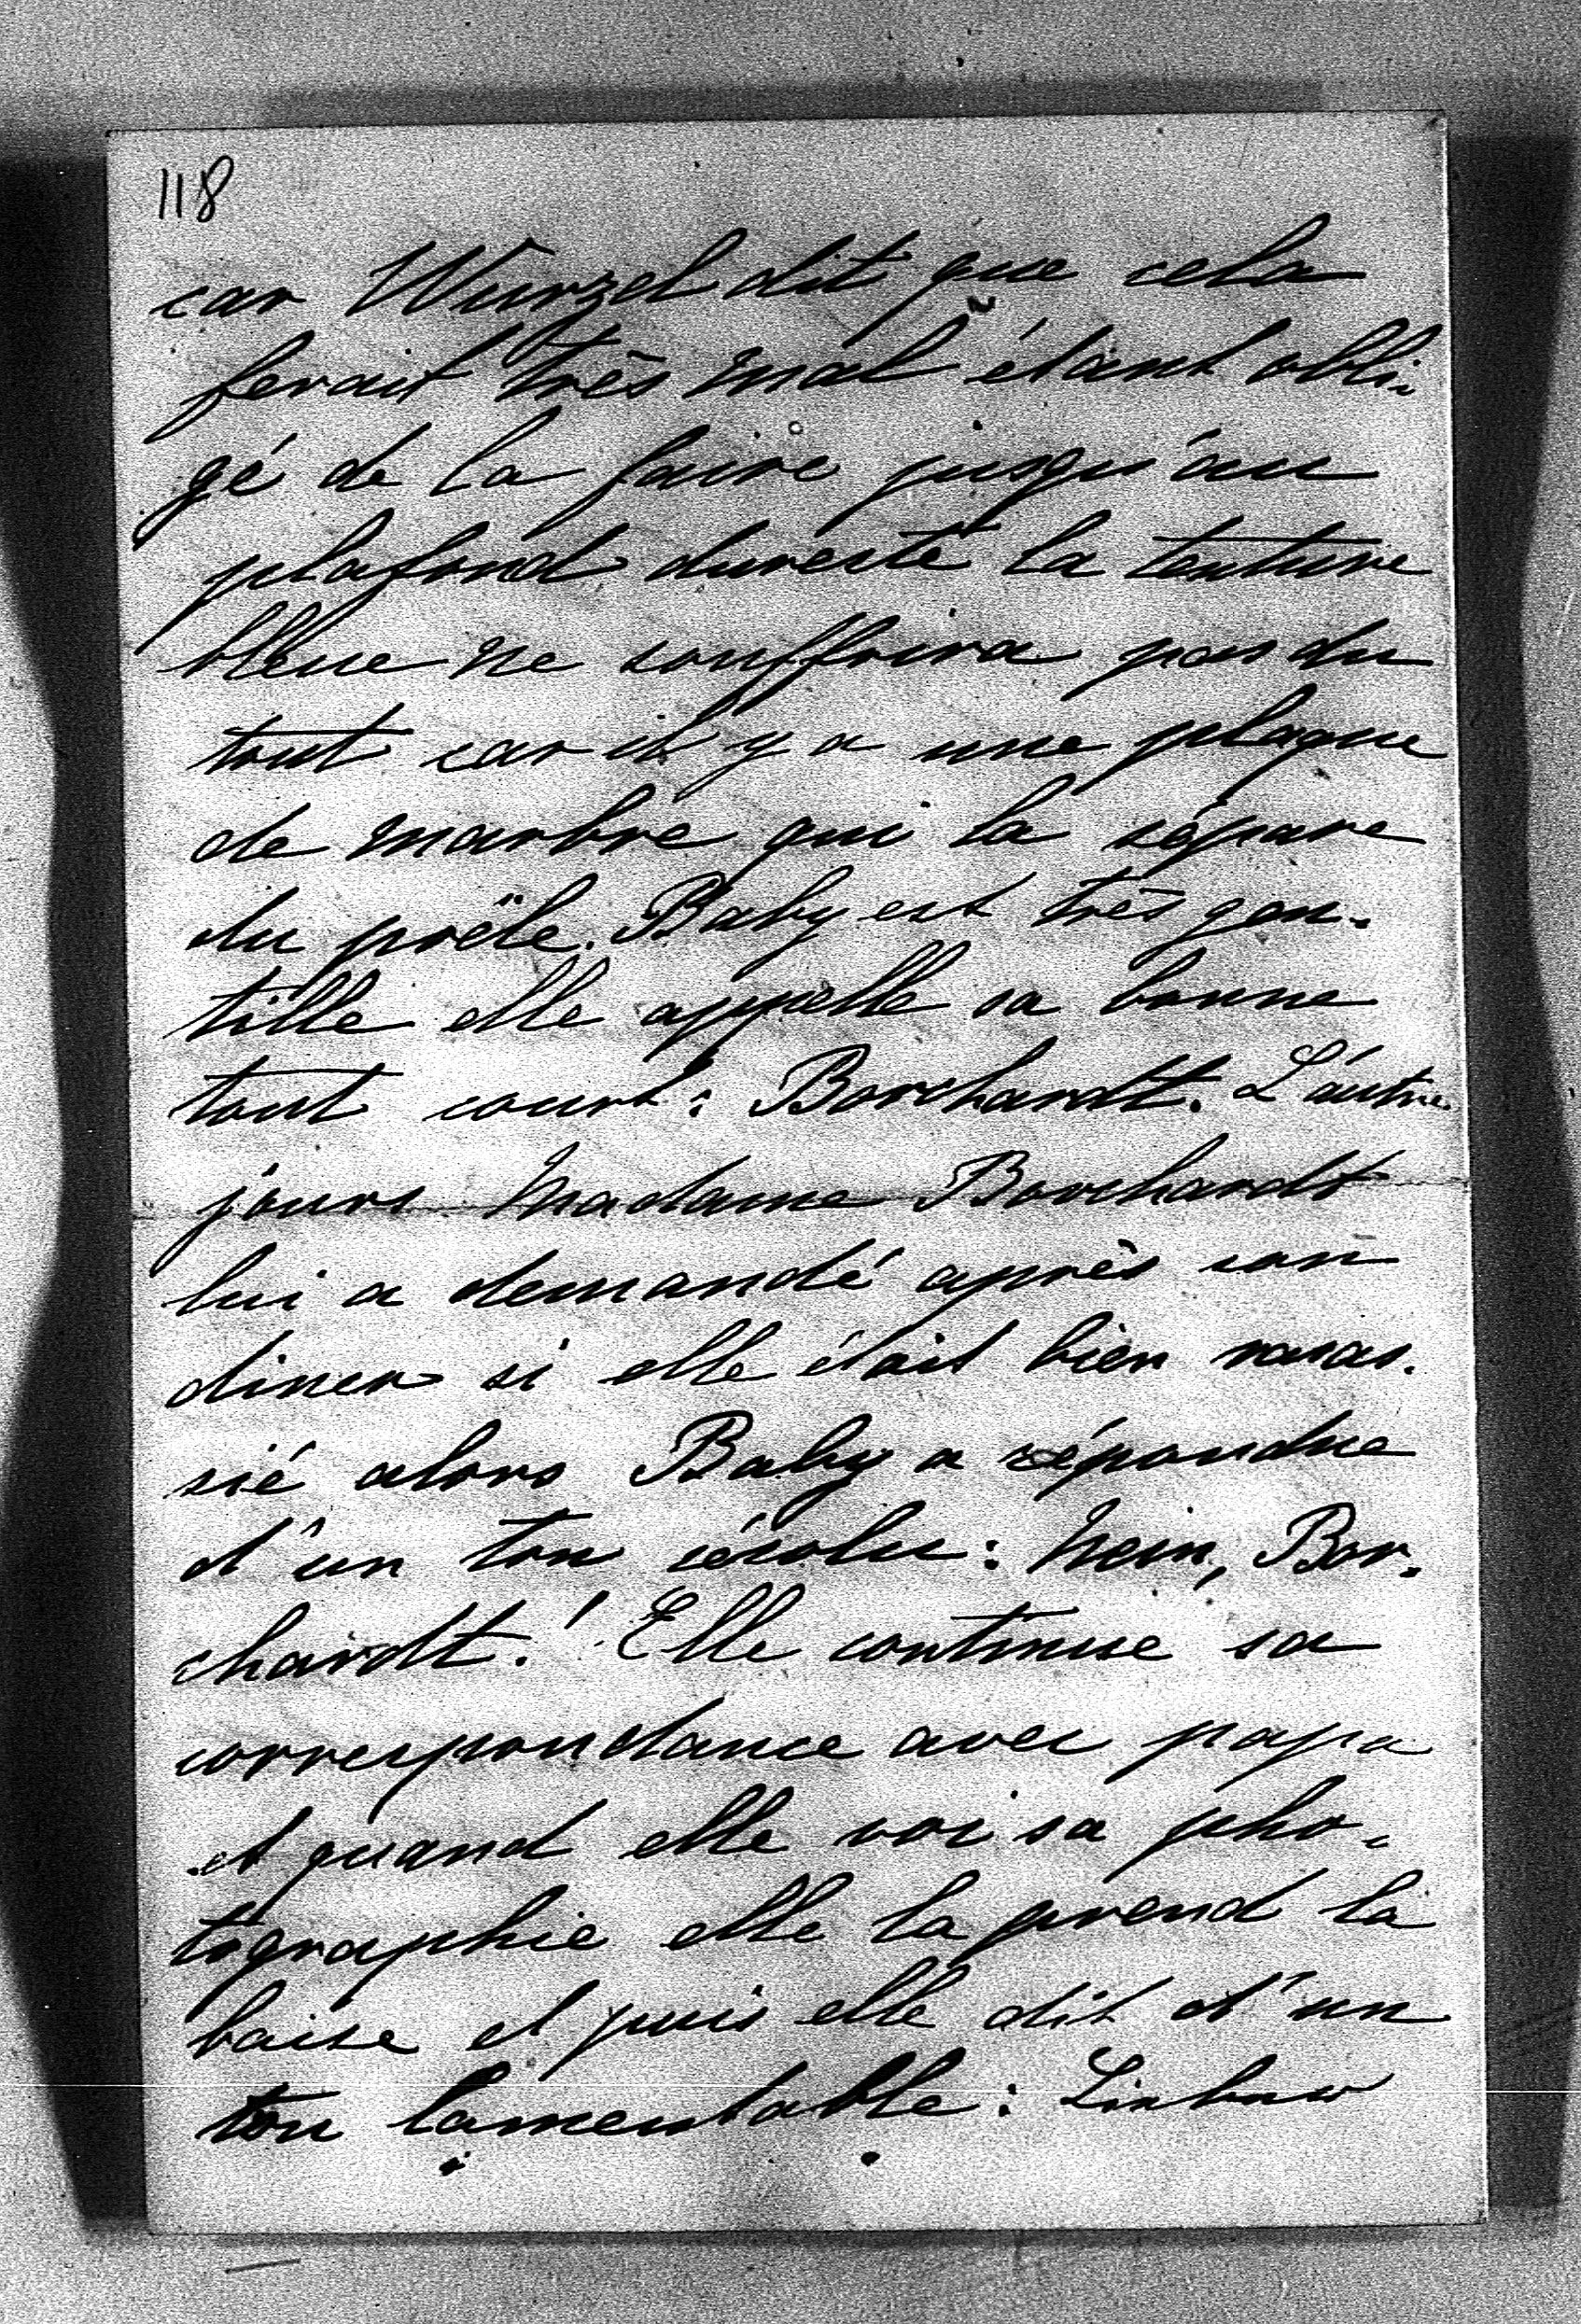 118
car Wurzel dit que cela
ferait très mal étant obli-
gé de la faire jusqu'au
plafond dureste la tenture
bleue ne souffrira pas du
tout car il y a une plaque
de marbre qui la sépare
du poële. Baby est très gen-
tille elle appelle sa bonne
tout court: Borchardt. L'autre
jours Madame Borchardt
lui a demandé après son
diner si elle était bien rasas-
sié alors Baby a répondue
d'un ton résolu: Nein, Bor-
chardt! Elle continue sa
correspondance avec papa
et quand elle voi sa pho-
tographie elle la prend la
baise et puis elle dit d'un
ton lamentable: